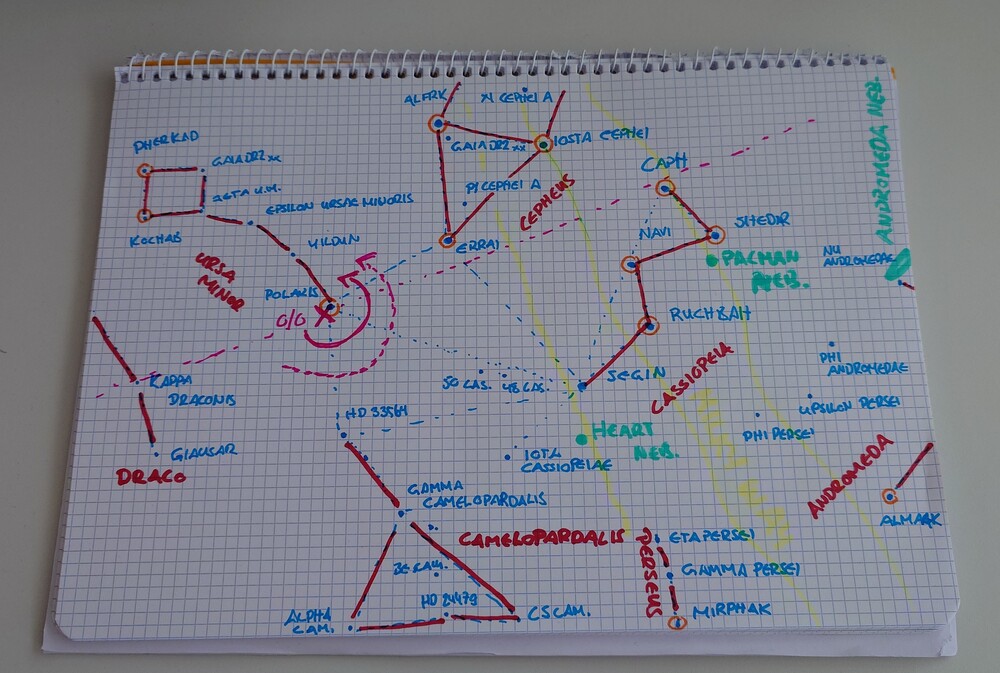 ALFRK
XI CEPHEI A
PHERKAD
GAIA DR2 xx
IOSTA CEPHEI
GAIA DR2 xx
CAPH
ANDROMEDA NEB.
ZETA U.M.
PI CEPHEI A
CEPHEUS
EPSILON URSAE MINORIS
KOCHAB
YILDUN
ERRAI
NAVI
SHEDIR
PACMAN
NEB.
NU
ANDROMEDAE
URSA
MINOR
POLARIS
0/0
RUCHBAH
KAPPA
DRACONIS
50 CAS.
48 CAS.
SEGIN
CASSIOPEIA
PHI
ANDROMEDAE
HD 33564
HEART
NEB.
UPSILON PERSEI
PHI PERSEI
GIAUSAR
DRACO
IOTA
CASSIOPEIAE
ANDROMEDA
GAMMA
CAMELOPARDALIS
ALMAAK
CAMELOPARDALIS
PERSEUS
ETA PERSEI
BE CAM.
GAMMA PERSEI
HD 24479
ALPHA
CAM.
CS CAM.
MIRPHAK